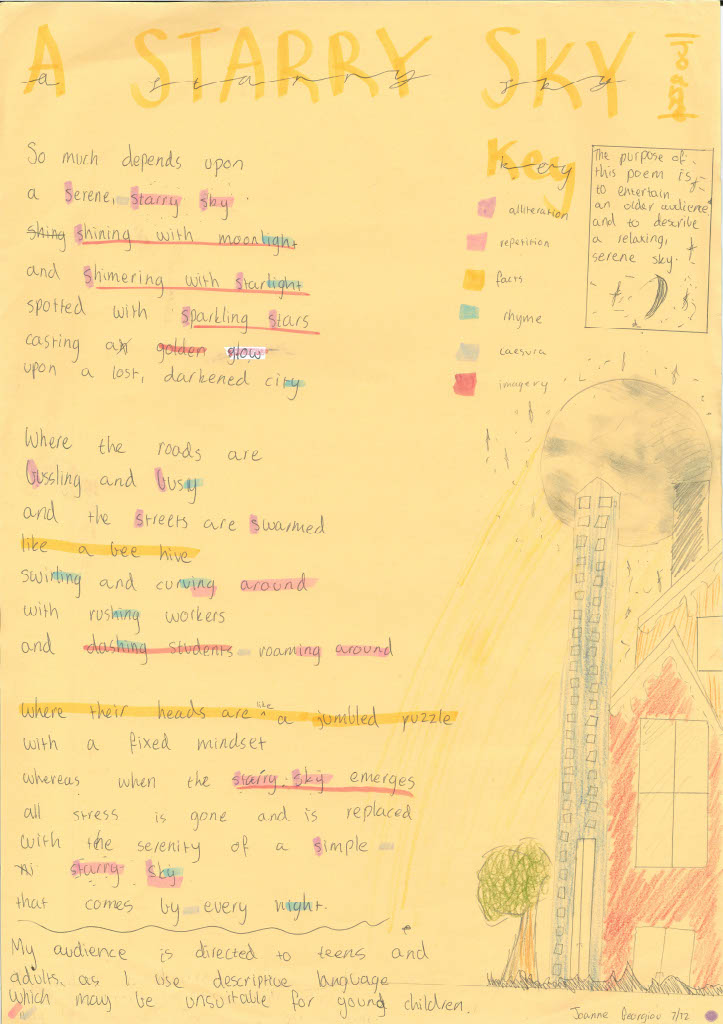 A STARRY SKY
a starry sky
So much depends upon
a serene, starry sky
shing shining with moonlight
and shimering with starlight
spotted with sparkling stars
casting a golden glow
upon a lost, darkened city
Where the roads are
bussling and busy
and the streets are swarmed
like a bee hive
swirling and curving around
with rushing workers
and dashing students roaming around
where their heads are like a jumbled puzzle
with a fixed mindset
whereas when the starry sky emerges
all stress is gone and is replaced
with the serenity of a simple
starry sky
that comes by every night.
My audience is directed to teens and
adults as I use descriptive language
which may be unsuitable for young children.
Key
key
alliteration
repetition
facts
rhyme
caesura
imagery
The purpose of
this poem is
to entertain
an older audience
and to describe
a relaxing,
serene sky.
Joanne Georgiou 7/12